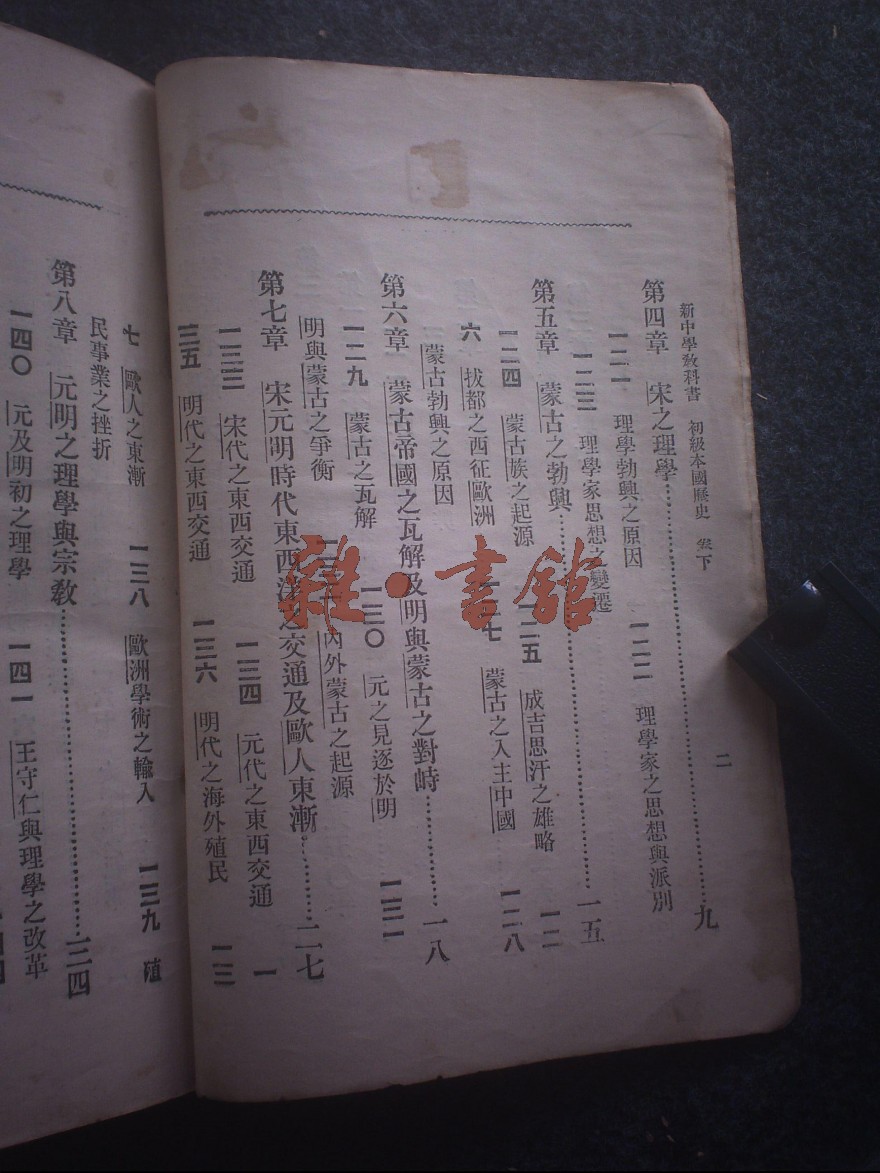 新中學教科書 初級本國歷史 卷下 二
第四章 宋之理學……………………九
一二一 理學勃興之原因 一二二 理學家之思想與派別
一二三 理學家思想之變遷
第五章 蒙古之勃興……………………一五
一二四 蒙古族之起源 一二五 成吉思汗之雄略 一二
六 拔都之西征歐洲 一二七 蒙古之入主中國 一二八
蒙古勃興之原因
第六章 蒙古帝國之瓦解及明與蒙古之對峙………一八
一二九 蒙古之瓦解 一三〇 元之見逐於明 一三一
明與蒙古之爭衡 一三二 內外蒙古之起源
第七章 宋元明時代東西洋之交通及歐人東漸………二七
一三三 宋代之東西交通 一三四 元代之東西交通 一
三五 明代之東西交通 一三六 明代之海外殖民 一三
七 歐人之東漸 一三八 歐洲學術之輸入 一三九 殖
民事業之挫折
第八章 元明之理學與宗教……………………三四
一四〇 元及明初之理學 一四一 王守仁與理學之改革
雜·書館